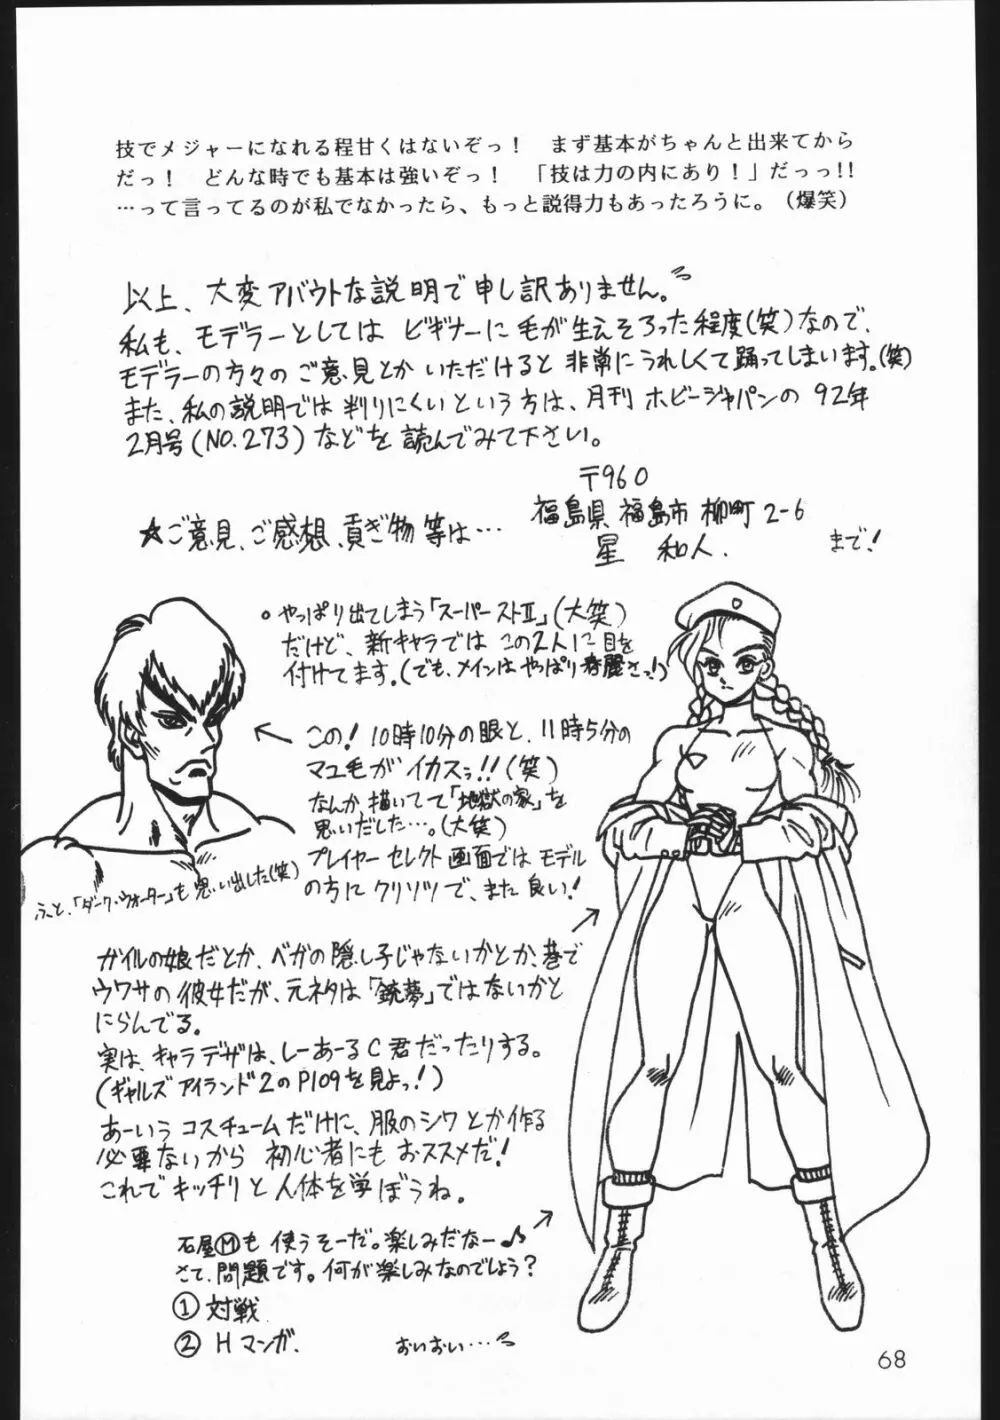 技でメジャーになれる程甘くはないぞっ！　まず基本がちゃんと出来てから
だっ！　どんな時でも基本は強いぞっ！　「技は力の内にあり！」だっっ!!
…って言ってるのが私でなかったら、もっと説得力もあったろうに。（爆笑）
以上、大変アバウトな説明で申し訳ありません。
私も、モデラーとしては ビギナーに毛が生えそろった程度(笑)なので、
モデラーの方々の ご意見とか いただけると 非常にうれしくて踊ってしまいます。(笑)
また、私の説明では 判りにくいという方は、月刊 ホビージャパンの 92年
2月号(NO.273)などを 読んでみて下さい。
〒960
福島県 福島市 柳町 2-6
☆ご意見、ご感想、貢ぎ物 等は…
星 和人. まで!
○やっぱり出てしまう「スーパーストⅡ」(大笑)
だけど、新キャラでは この2人に目を
付けてます。(でも、メインは やっぱり 春麗さっ!)
この! 10時10分の眼と、11時5分の
マユ毛が イカスぅ!!(笑)
なんか、描いてて「地獄の家」を
思いだした…。(大笑)
プレイヤー セレクト 画面では モデル
の方に クリソツで、また 良い!
ふと、「ダーク・ウォーター」も 思い出した(笑)
ガイルの娘だとか、ベガの隠し子じゃないかとか、巷で
ウワサの 彼女だが、元ネタは「銃夢」ではないかと
にらんでる。
実は、キャラデザは、しーあーるC君だったりする。
(ギャルズアイランド2のP109を見よっ!)
あーいう コスチュームだけに、服のシワとか作る
必要ないから 初心者にも おススメだ!
これで キッチリと 人体を学ぼうね。
石屋Ⓜも 使うそーだ。楽しみだなー♪
さて、問題です。何が楽しみなのでしょう?
① 対戦
② H マンガ. おいおい…
68